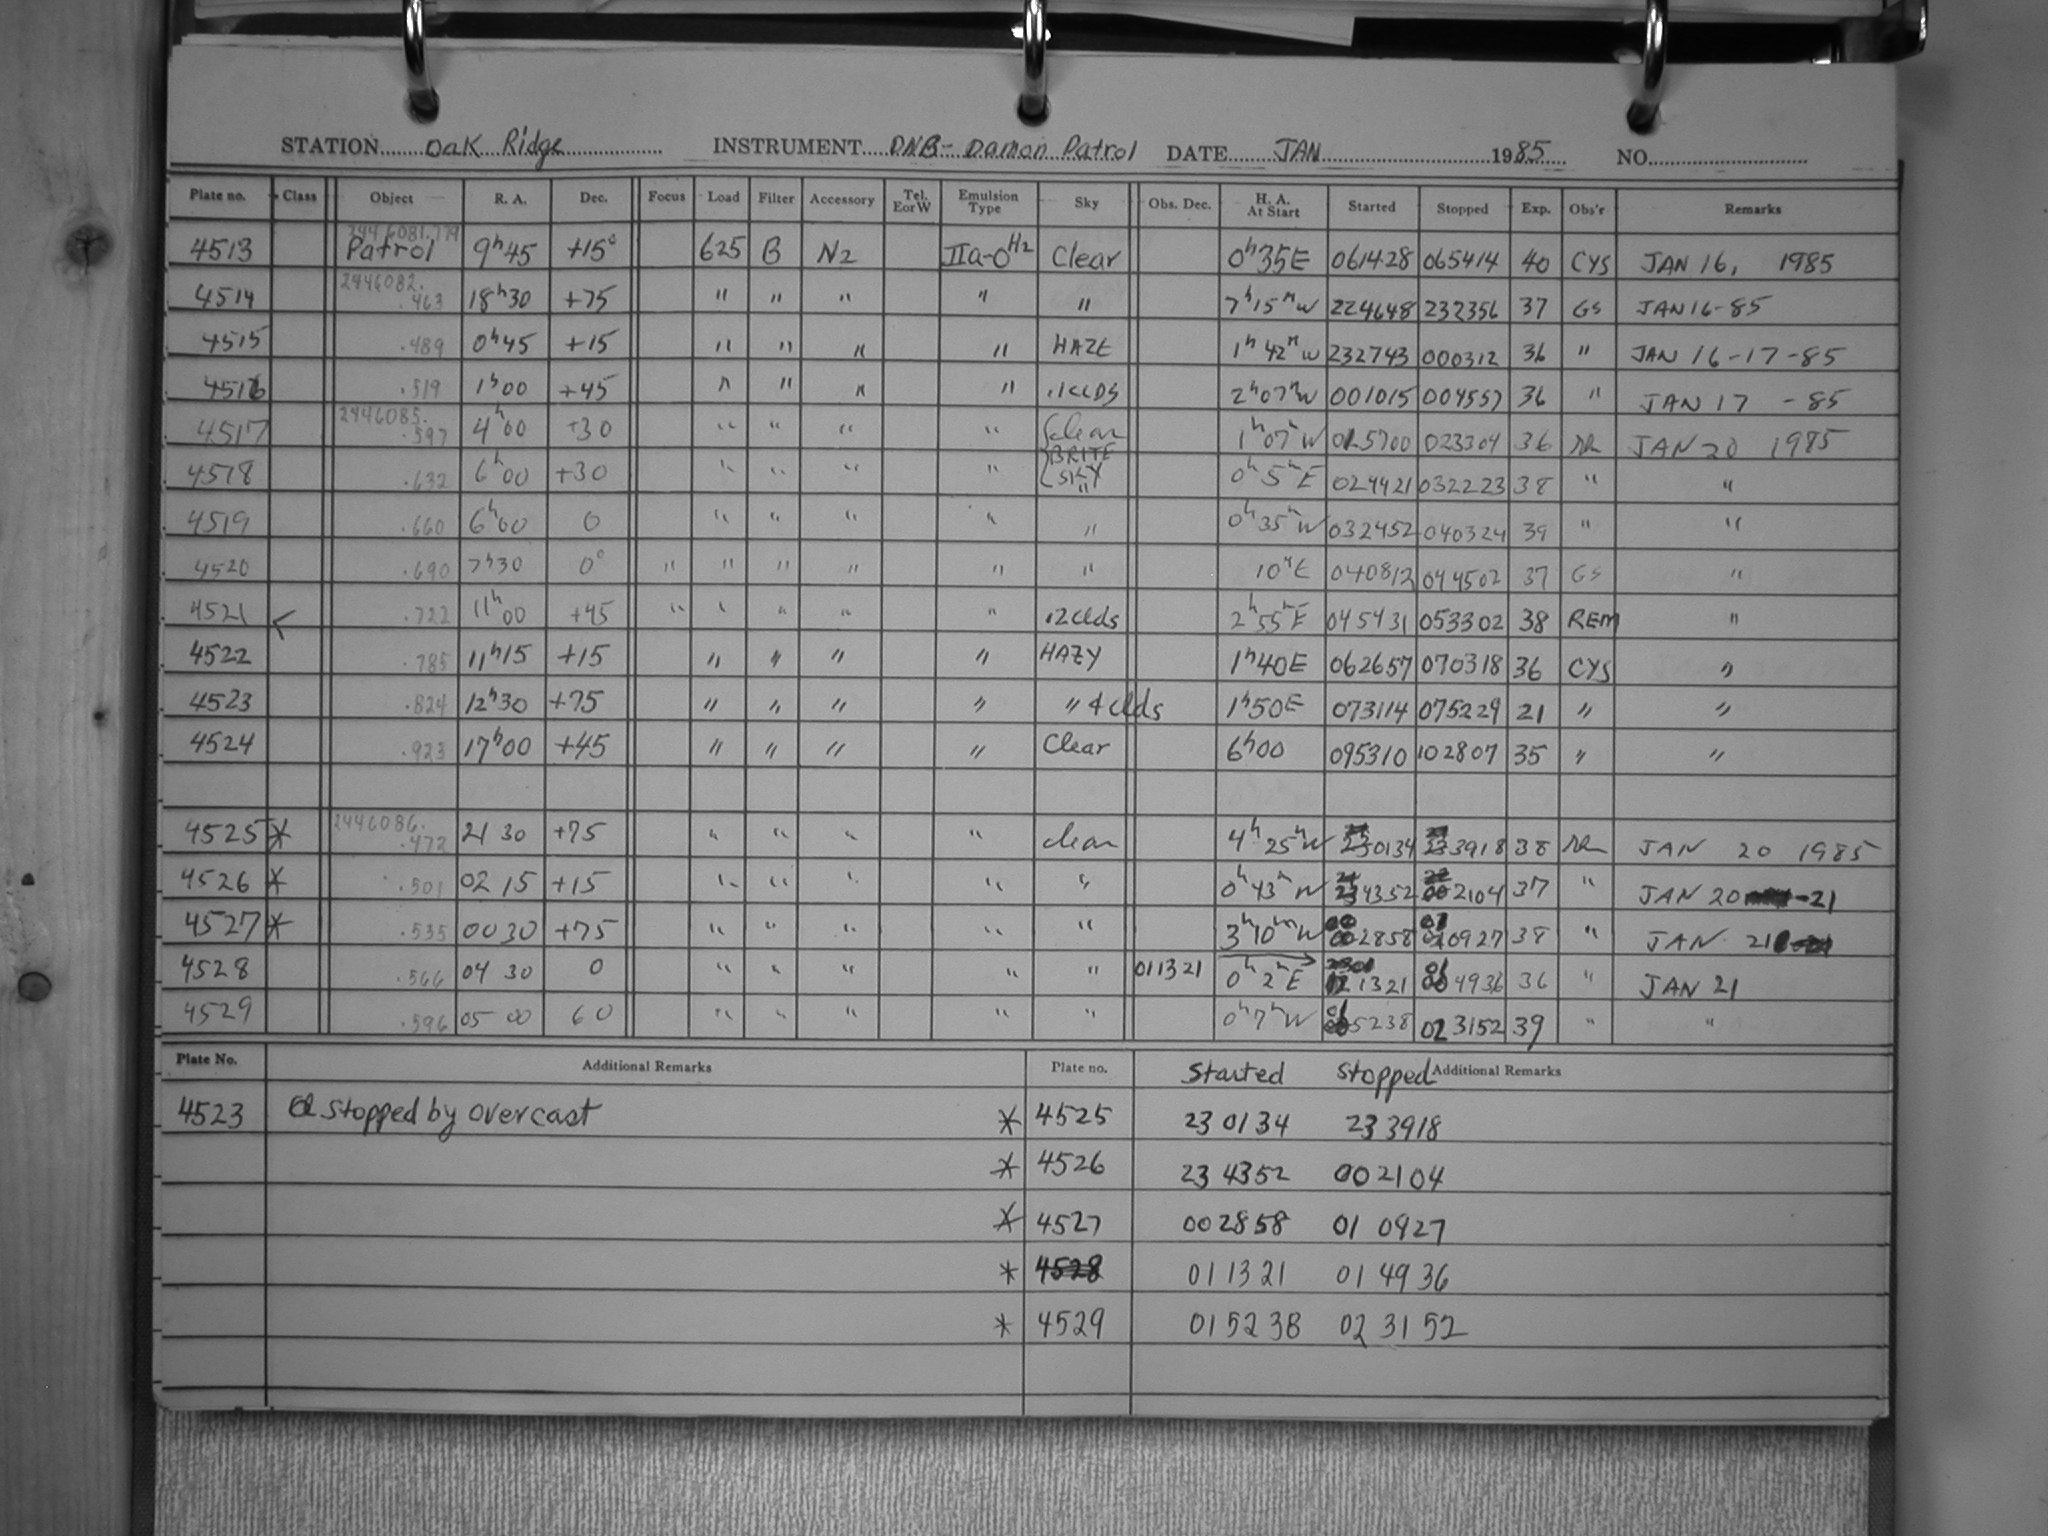 STATION Oak Ridge INSTRUMENT DNB- Damon Patrol DATE JAN 1985 NO.
Plate no. Class Object R. A. Dec. Focus Load Filter Accessory Tel. E or W Emulsion Type Sky Obs. Dec. H. A. At Start Started Stopped Exp. Obs'r Remarks
4513 2446081.779 Patrol 9h45 +15° 625 B N2 IIa-OH2 Clear 0h35E 061428 065414 40 CYS JAN 16, 1985
4514 2446082. .463 18h30 +75 " " " " " 7h15mW 224648 232356 37 GS JAN 16-85
4515 .489 0h45 +15 " " " " HAZE 1h42mW 232743 000312 36 " JAN 16-17-85
4516 .519 1h00 +45 " " " " .1CLDS 2h07mW 001015 004557 36 " JAN 17 -85
4517 2446085. .597 4h00 +30 " " " " clear 1h07mW 015700 023304 36 JAN 20 1985
4518 .632 6h00 +30 " " " " BRITE SKY " 0h5mE 024421 032223 38 " "
4519 .660 6h00 0 " " " " " 0h35mW 032452 040324 39 " "
4520 .690 7h30 0° " " " " " " 10mE 040812 044502 37 GS "
4521 < .722 11h00 +45 " " " " " .2clds 2h55mE 045431 053302 38 REM "
4522 .785 11h15 +15 " " " " HAZY 1h40E 062657 070318 36 CYS "
4523 .824 12h30 +75 " " " " " 4 clds 1h50E 073114 075229 21 " "
4524 .923 17h00 +45 " " " " Clear 6h00 095310 102807 35 " "
4525 * 2446086. .472 21 30 +75 " " " " clear 4h25mW 230134 233918 38 JAN 20 1985
4526 * .501 02 15 +15 " " " " " 0h43mW 234352 002104 37 " JAN 20 -21
4527 * .535 00 30 +75 " " " " " 3h10mW 002858 010927 38 " JAN 21
4528 .566 04 30 0 " " " " " 011321 0h2mE 011321 014936 36 " JAN 21
4529 .596 05 00 60 " " " " " 0h7mW 015238 023152 39 " "
Plate No. Additional Remarks Plate no. Started Stopped Additional Remarks
4523 Stopped by overcast * 4525 23 01 34 23 3918
* 4526 23 4352 00 2104
* 4527 00 2858 01 0927
* 4528 01 13 21 01 49 36
* 4529 01 52 38 02 31 52